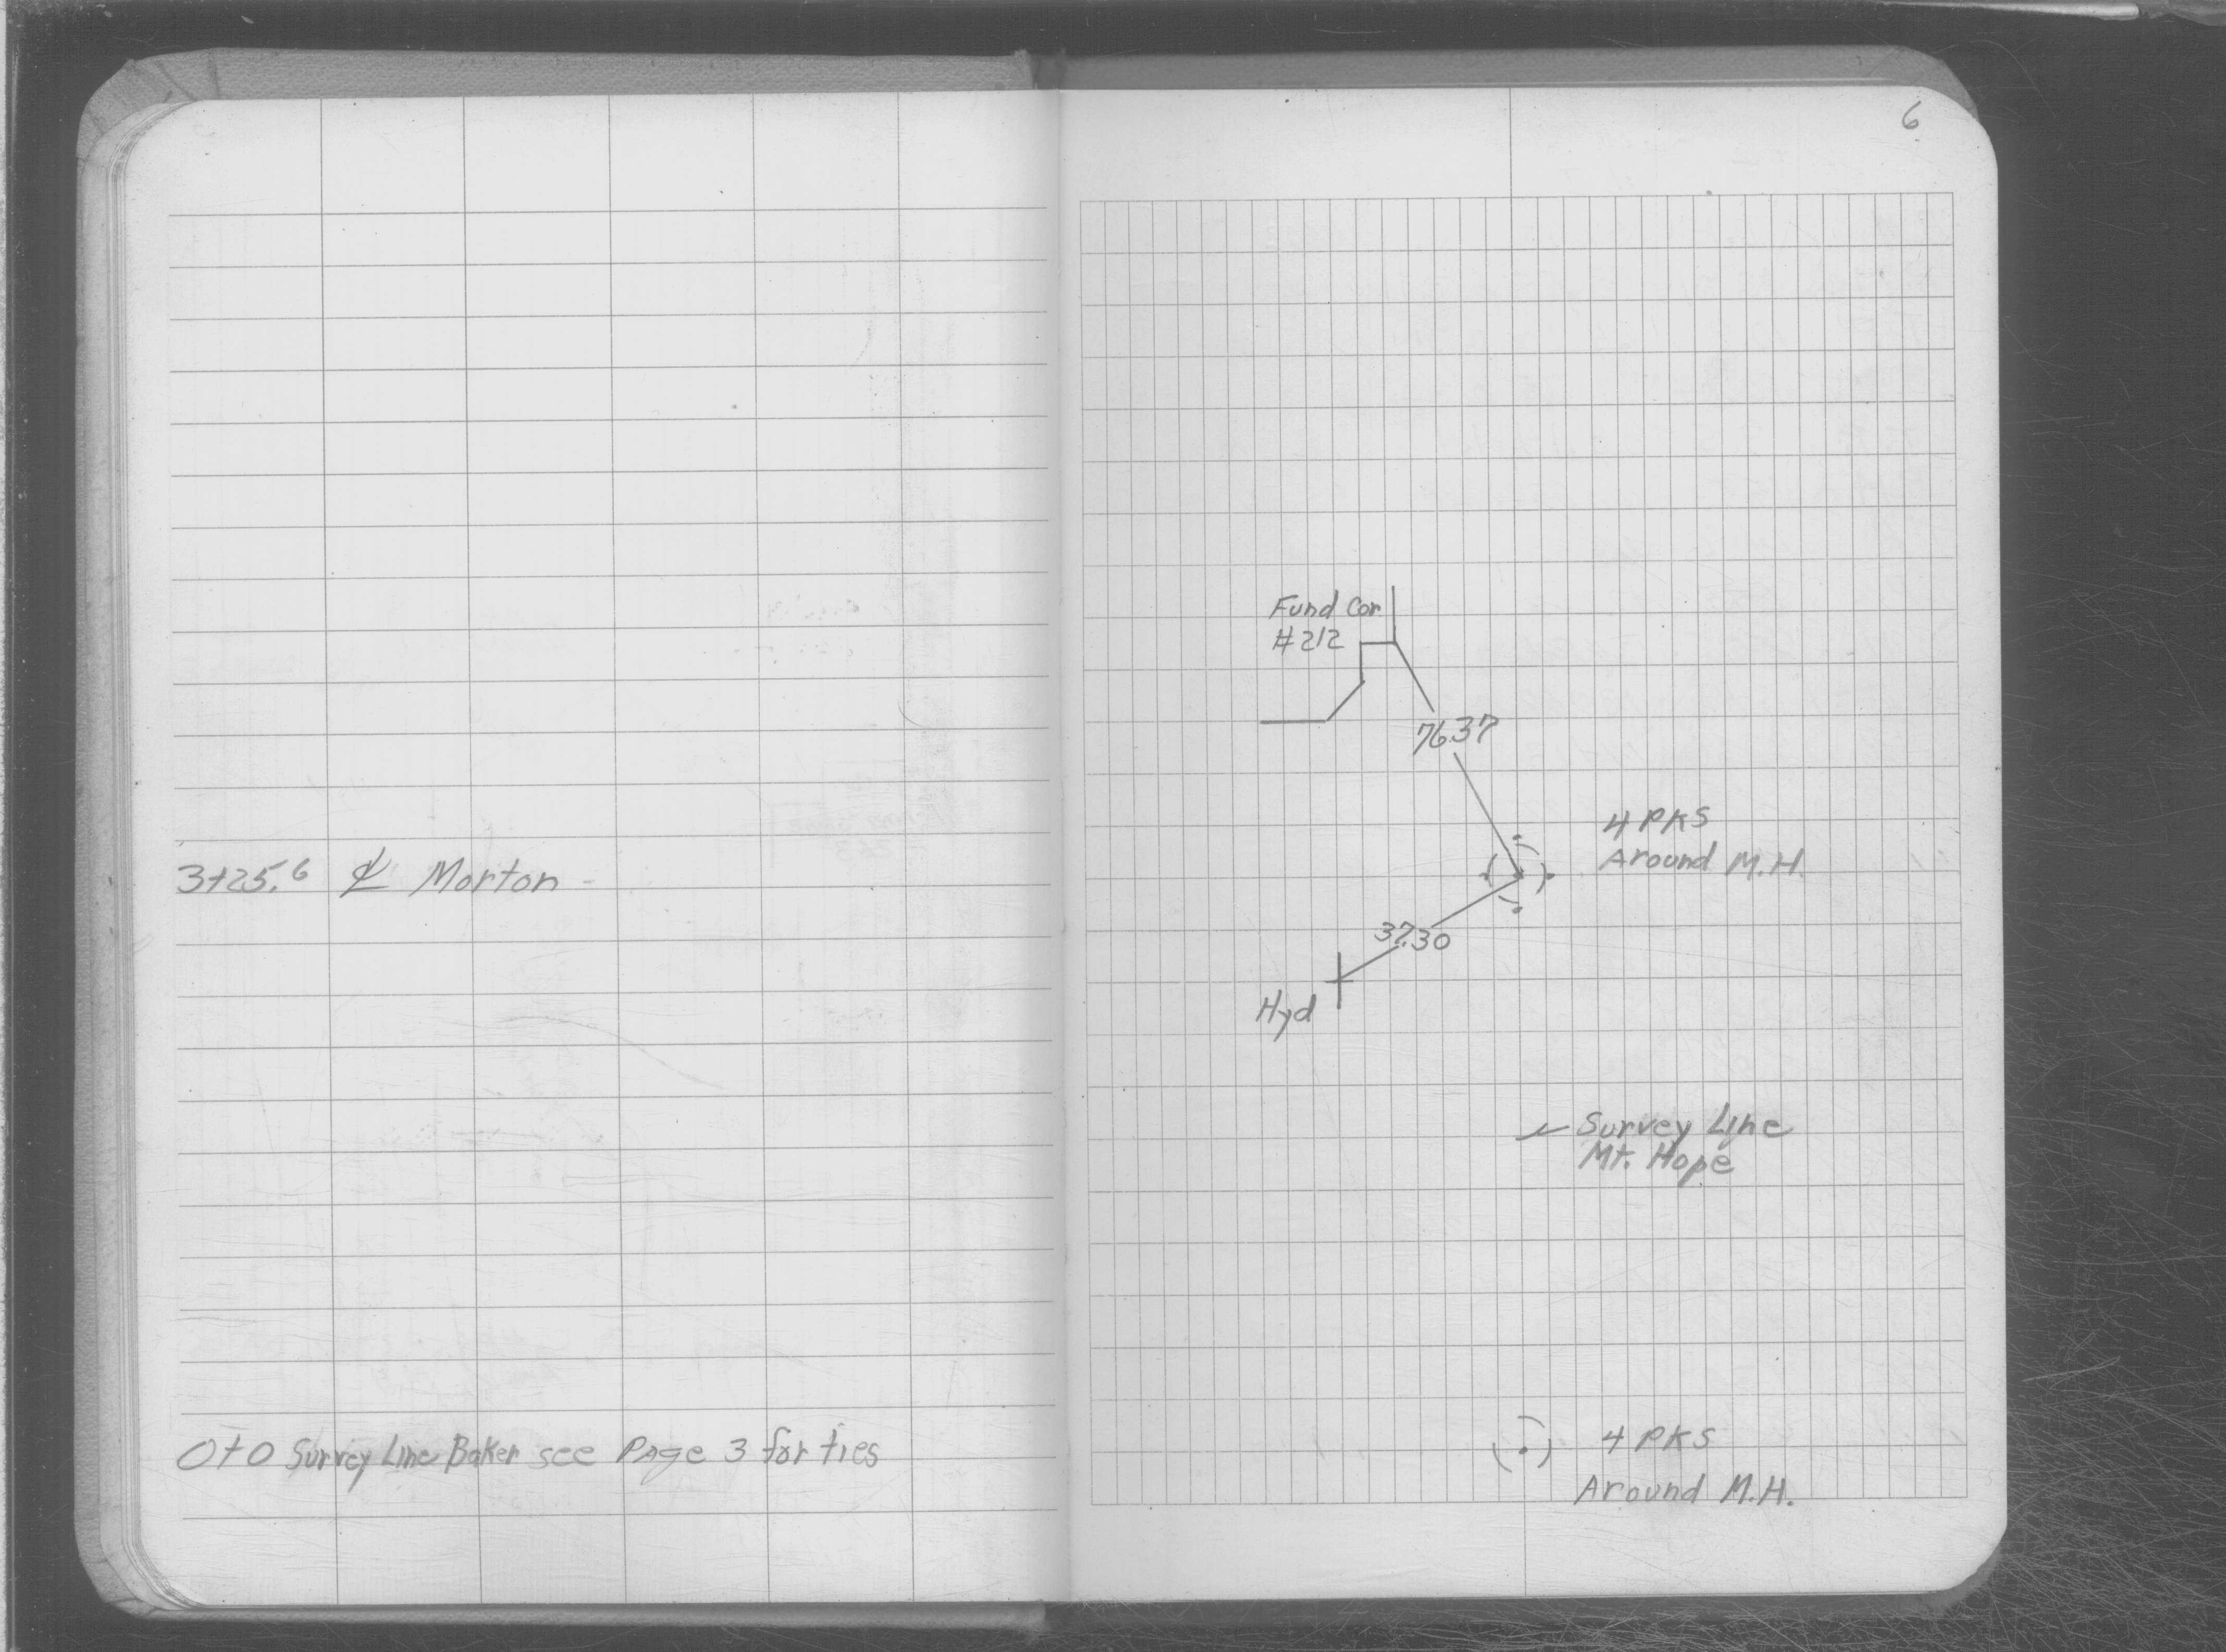 3+25.6 ℄ Morton -
0+0 Survey Line Baker see Page 3 for ties
6
Fund Cor.
#212
76.37
4 PKS
Around M.H.
37.30
Hyd
Survey Line
Mt. Hope
4 PKS
Around M.H.